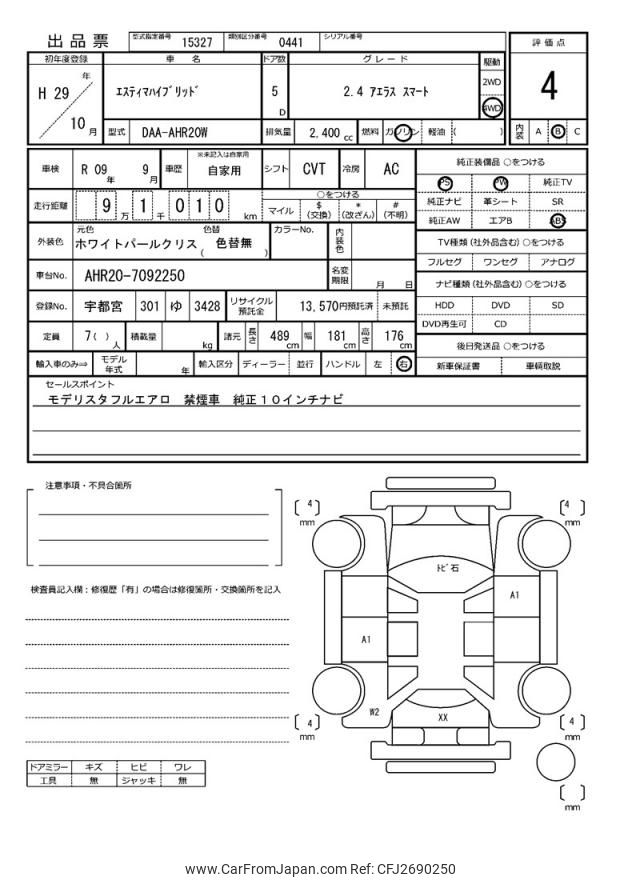 出品票
型式指定番号 15327 類別区分番号 0441 シリアル番号
評価点
初年度登録 車名 ドア数 グレード 駆動
H 29 年 10 月
エスティマハイブリッド
5 D
2.4 アエラス スマート
2WD
4WD
4
型式 DAA-AHR20W 排気量 2,400 cc 燃料 ガソリン 軽油 ( )
内装 A B C
車検 R 09 年 9 月 車歴 ※未記入は自家用 自家用 シフト CVT 冷房 AC
純正装備品 ○をつける
PS PW 純正TV
走行距離 9 万 1 千 0 1 0 km
○をつける
マイル $ (交換) * (改ざん) # (不明)
純正ナビ 革シート SR
純正AW エアB ABS
外装色 元色 ホワイトパールクリス 色替 ( 色替無 ) カラーNo. 内装色
TV種類 (社外品含む) ○をつける
フルセグ ワンセグ アナログ
車台No. AHR20-7092250 名変期限 月 日
ナビ種類 (社外品含む) ○をつける
登録No. 宇都宮 301 ゆ 3428 リサイクル預託金 13,570円預託済 未預託
HDD DVD SD
DVD再生可 CD
定員 7( ) 人 積載量 kg 諸元 長さ 489 cm 幅 181 cm 高さ 176 cm
後日発送品 ○をつける
輸入車のみ⇒ モデル年式 年 輸入区分 ディーラー 並行 ハンドル 左 右
新車保証書 車輌取説
セールスポイント
モデリスタフルエアロ 禁煙車 純正10インチナビ
注意事項・不具合箇所
検査員記入欄：修復歴「有」の場合は修復箇所・交換箇所を記入
[ 4 ] mm
[ 4 ] mm
トビ石
A1
A1
W2
XX
[ 4 ] mm
[ 4 ] mm
[ ] mm
ドアミラー キズ ヒビ ワレ
工具 無 ジャッキ 無
www.CarFromJapan.com Ref: CFJ2690250